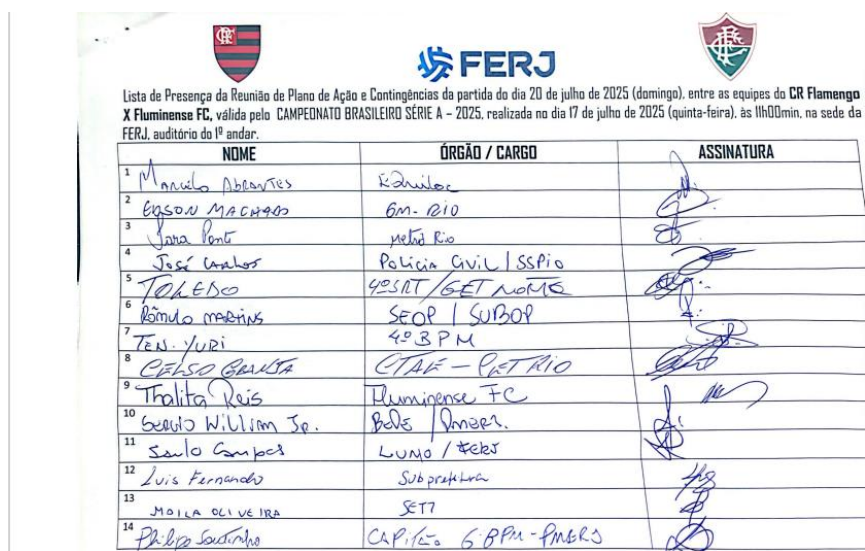 FERJ
Lista de Presença da Reunião de Plano de Ação e Contingências da partida do dia 20 de julho de 2025 (domingo), entre as equipes do CR Flamengo
X Fluminense FC, válida pelo CAMPEONATO BRASILEIRO SÉRIE A – 2025, realizada no dia 17 de julho de 2025 (quinta-feira), às 11h00min, na sede da
FERJ, auditório do 1º andar.
NOME ÓRGÃO / CARGO ASSINATURA
1 Marcelo Abrantes
2 EDSON MACHADO GM-RIO
3 Sara Ponte Metrô Rio
4 José Carlos Polícia Civil / SSPIO
5 TOLEDO 4º SRT / GET
6 Rômulo MARTINS SEOP / SUBOP
7 TEN. YURI 4º BPM
8 CELSO GRANJA CTAE - CET RIO
9 Thalita Reis Fluminense FC
10 Sergio William Jr. BEPE / PMERJ.
11 Saulo Campos LUMO / FERJ
12 Luis Fernando Subprefeitura
13 MOILA OLIVEIRA SETT
14 Philipe CAPITÃO 6º BPM - PMERJ